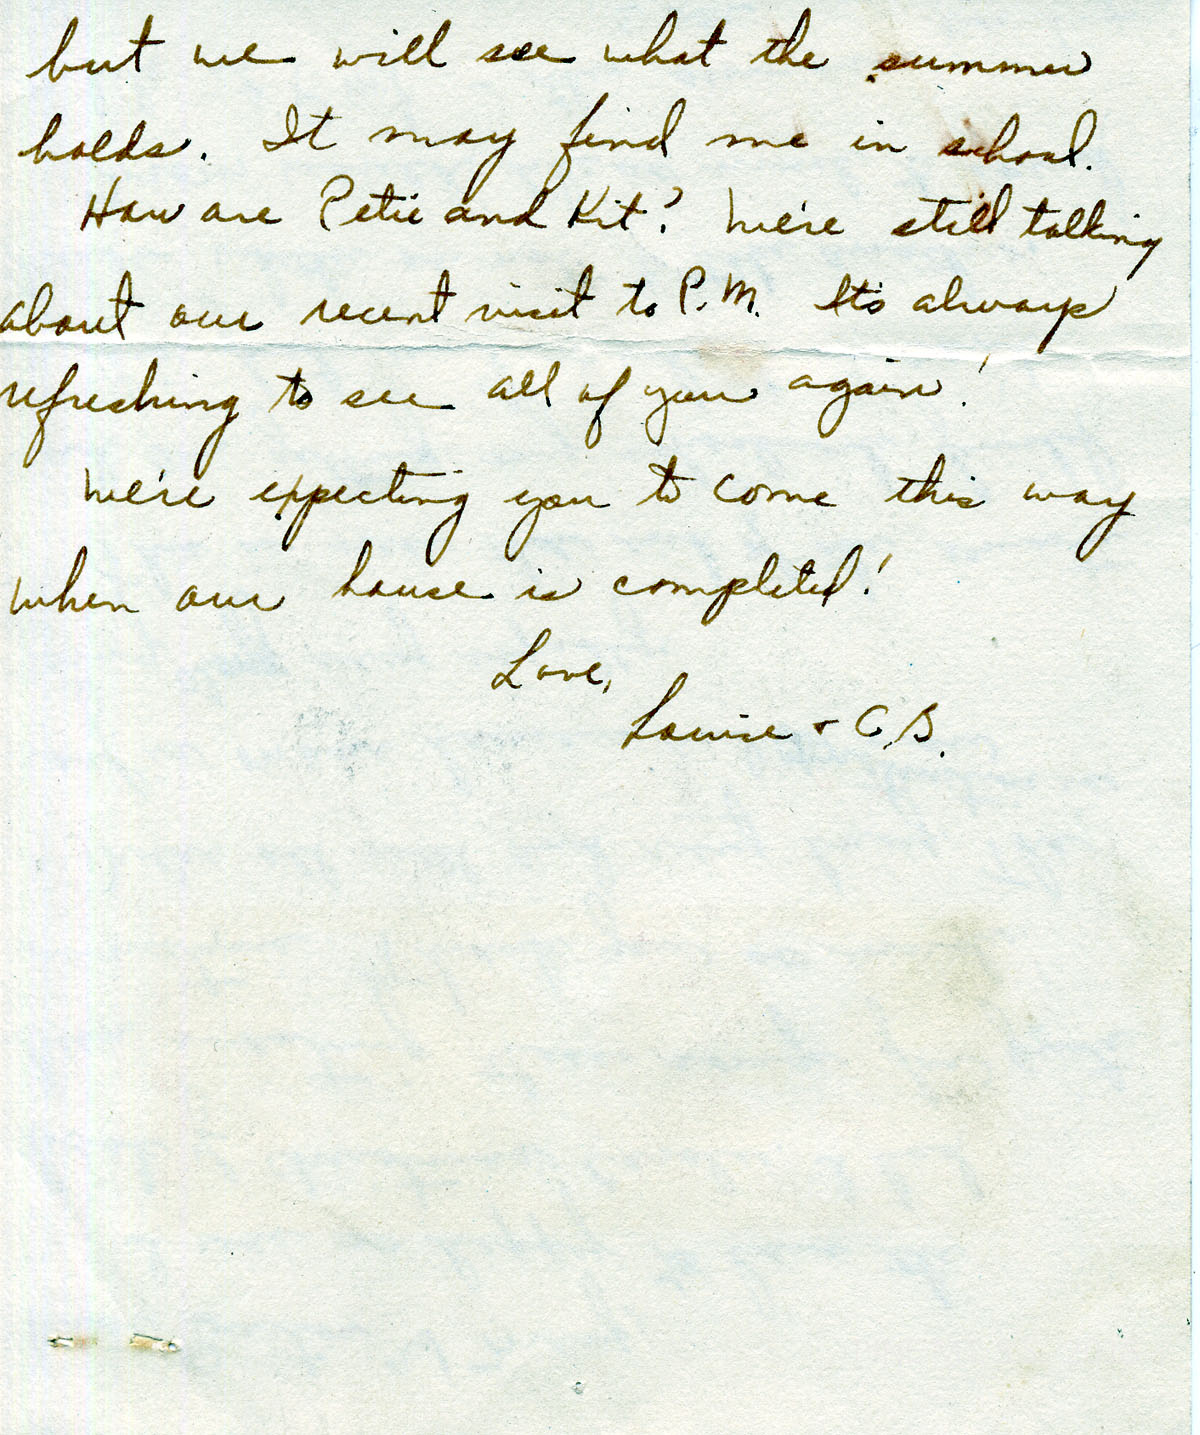 but we will see what the summer
holds. It may find me in school.
How are Petie and Kit? We're still talking
about our recent visit to P.M. It's always
refreshing to see all of you again!
We're expecting you to come this way
when our house is completed!
Love,
Louise + C.B.